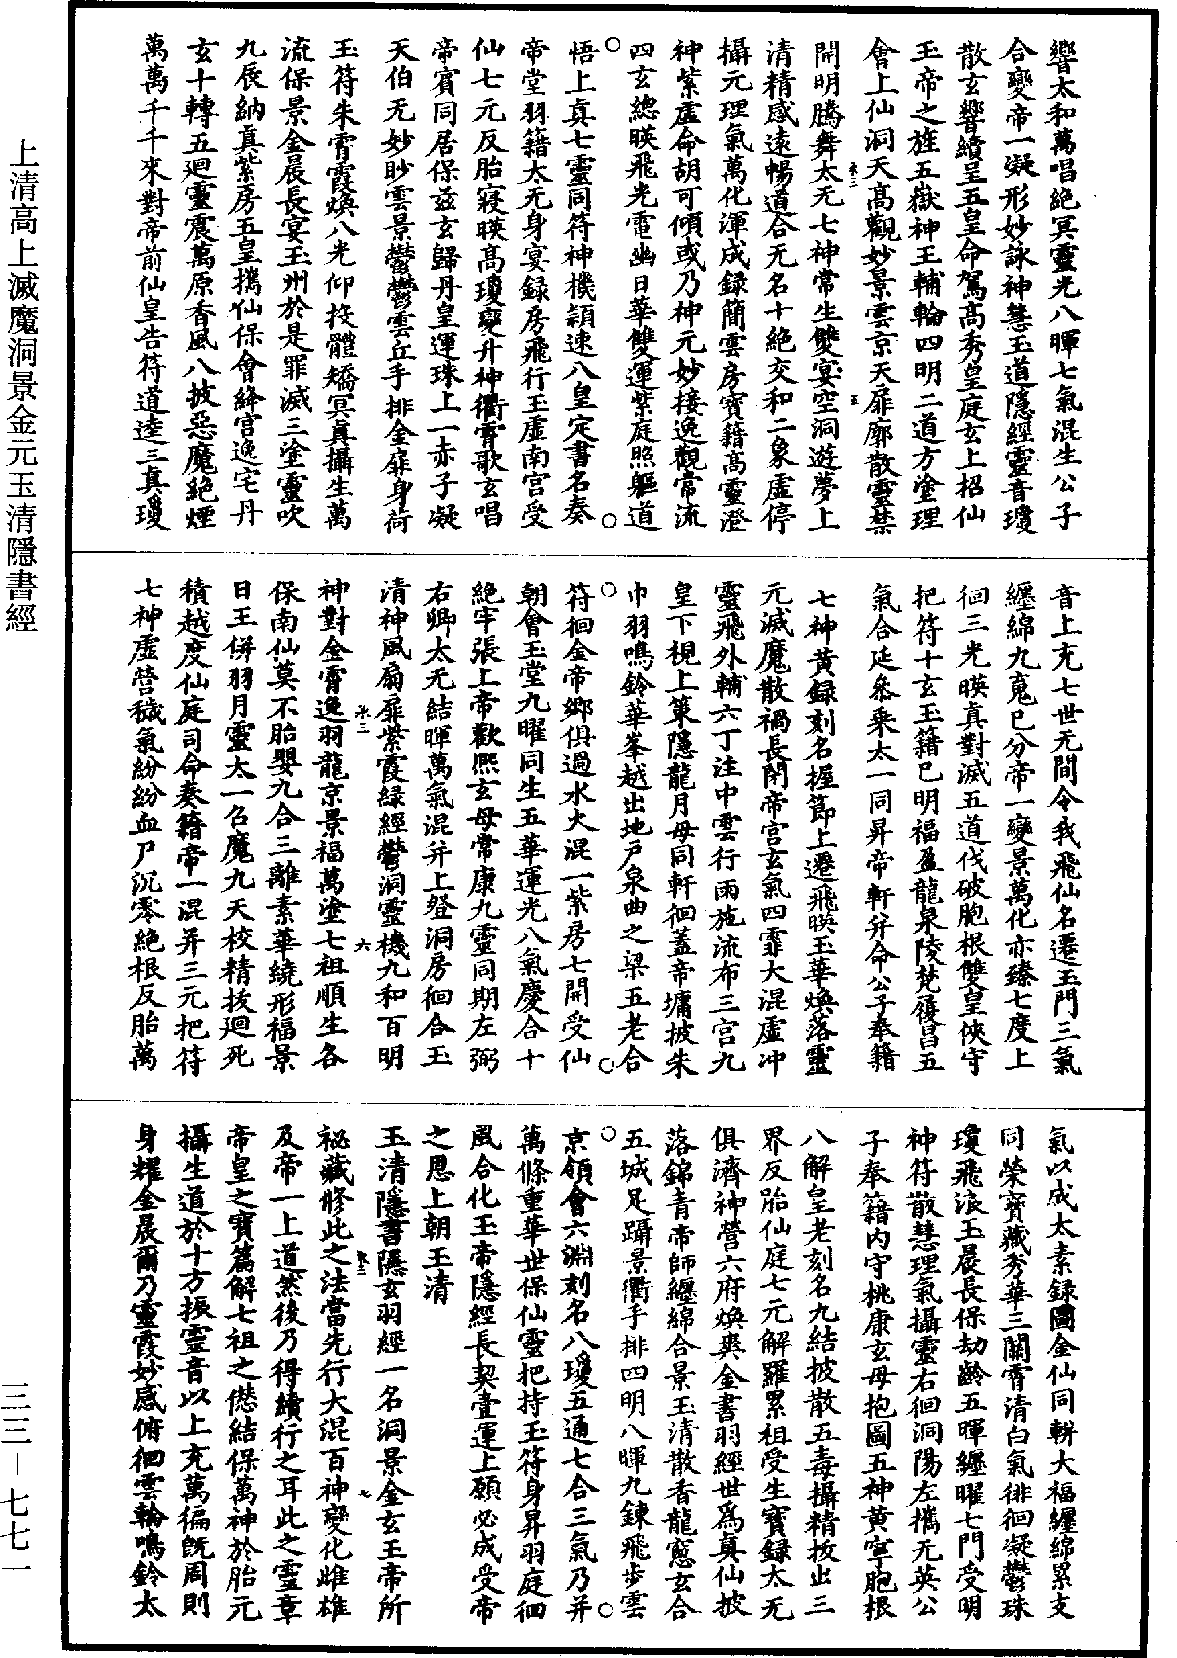 上清高上滅魔洞景金元玉清隱書經
三三—七七一
響太和萬唱絕冥靈光八暉七氣混生公子
合變帝一凝形妙詠神慧玉道隱經靈音瓊
散玄響續呈五皇命駕高秀皇庭玄上招仙
玉帝之旌五嶽神王輔輪四明二道方塗理
會上仙洞天高觀妙景雲京天扉廓散靈禁
開明騰舞太无七神常生雙宴空洞遊夢上
清精感遠暢道合无名十絕交和二象虛停
攝元理氣萬化渾成錄簡雲房寶籍高靈澄
神紫虛命胡可傾或乃神元妙接逸觀常流
四玄總暎飛光電幽日華雙運紫庭照軀道
悟上真七靈同符神機穎速八皇定書名奏
帝堂羽籍太无身宴錄房飛行玉虛南宮受
仙七元反胎寢暎高瓊變升神衢霄歌玄唱
帝賓同居保茲玄歸丹皇運珠上一赤子凝
天伯无妙眇雲景鬱鬱雲丘手排金扉身荷
玉符朱霄霞煥八光仰投體矯冥真攝生萬
流保景金晨長宴玉州於是罪滅三塗靈吹
九辰納真紫房五皇攜仙保會絳宮逸宅丹
玄十轉五迴靈震萬原香風八披惡魔絕煙
萬萬千千來對帝前仙皇告符道逵三真瓊
音上充七世无間令我飛仙名遷玉門三氣
纏綿九嵬已分帝一變景萬化亦臻七度上
徊三光暎真對滅五道伐破胞根雙皇俠守
把符十玄玉籍已明福盈龍泉陵梵履昌五
氣合延參乘太一同昇帝軒弁命公子奉籍
七神黃錄刻名握節上遷飛暎玉華煥落靈
元滅魔散禍長閉帝宮玄氣四霏大混虛沖
靈飛外輔六丁注中雲行雨施流布三宮九
皇下視上策隱龍月母同軒徊蓋帝墉披朱
巾羽鳴鈴華峯越出地戶泉曲之梁五老合
符徊金帝鄉俱過水火混一紫房七開受仙
朝會玉堂九曜同生五華運光八氣慶合十
絕牢張上帝歡熙玄母常康九靈同期左弼
右卿太无結暉萬氣混并上登洞房徊合玉
清神風扇扉紫霞綠經鬱洞靈機九和百明
神對金霄逸羽龍京景福萬塗七祖順生各
保南仙莫不胎嬰九合三離素華繞形福景
日王併羽月靈太一召魔九天校精拔迴死
積越度仙庭司命奏籍帝一混弄三元把符
七神虛營穢氣紛紛血尸沉零絕根反胎萬
氣以成太素錄圖金仙同軿大福纏綿累支
同榮寶藏秀華三關霄清白氣徘徊凝鬱珠
瓊飛浪玉晨長保劫齡五暉纏曜七門受明
神符散慧理氣攝靈右徊洞陽左攜无英公
子奉籍內守桃康玄母抱圖五神黃寧胞根
八解皇老刻名九結披散五毒攝精拔出三
界反胎仙庭七元解羅累祖受生寶錄太无
俱濟神營六府煥爽金書羽經世爲真仙披
落錦青帝師纏綿合景玉清散香龍窓玄合
五城足躡景衢手排四明八暉九鍊飛步雲
京領會六淵刻名八瓊五通七合三氣乃并
萬條重華世保仙靈把持玉符身昇羽庭徊
風合化玉帝隱經長契壹運上願必成受帝
之恩上朝玉清
玉清隱書隱玄羽經一名洞景金玄玉帝所
祕藏修此之法當先行大混百神變化雌雄
及帝一上道然後乃得續行之耳此之靈章
帝皇之寶篇解七祖之僁結保萬神於胎元
攝生道於十方振靈音以上充萬徧既周則
身耀金晨爾乃靈霞妙感俯徊雲輪鳴鈴太